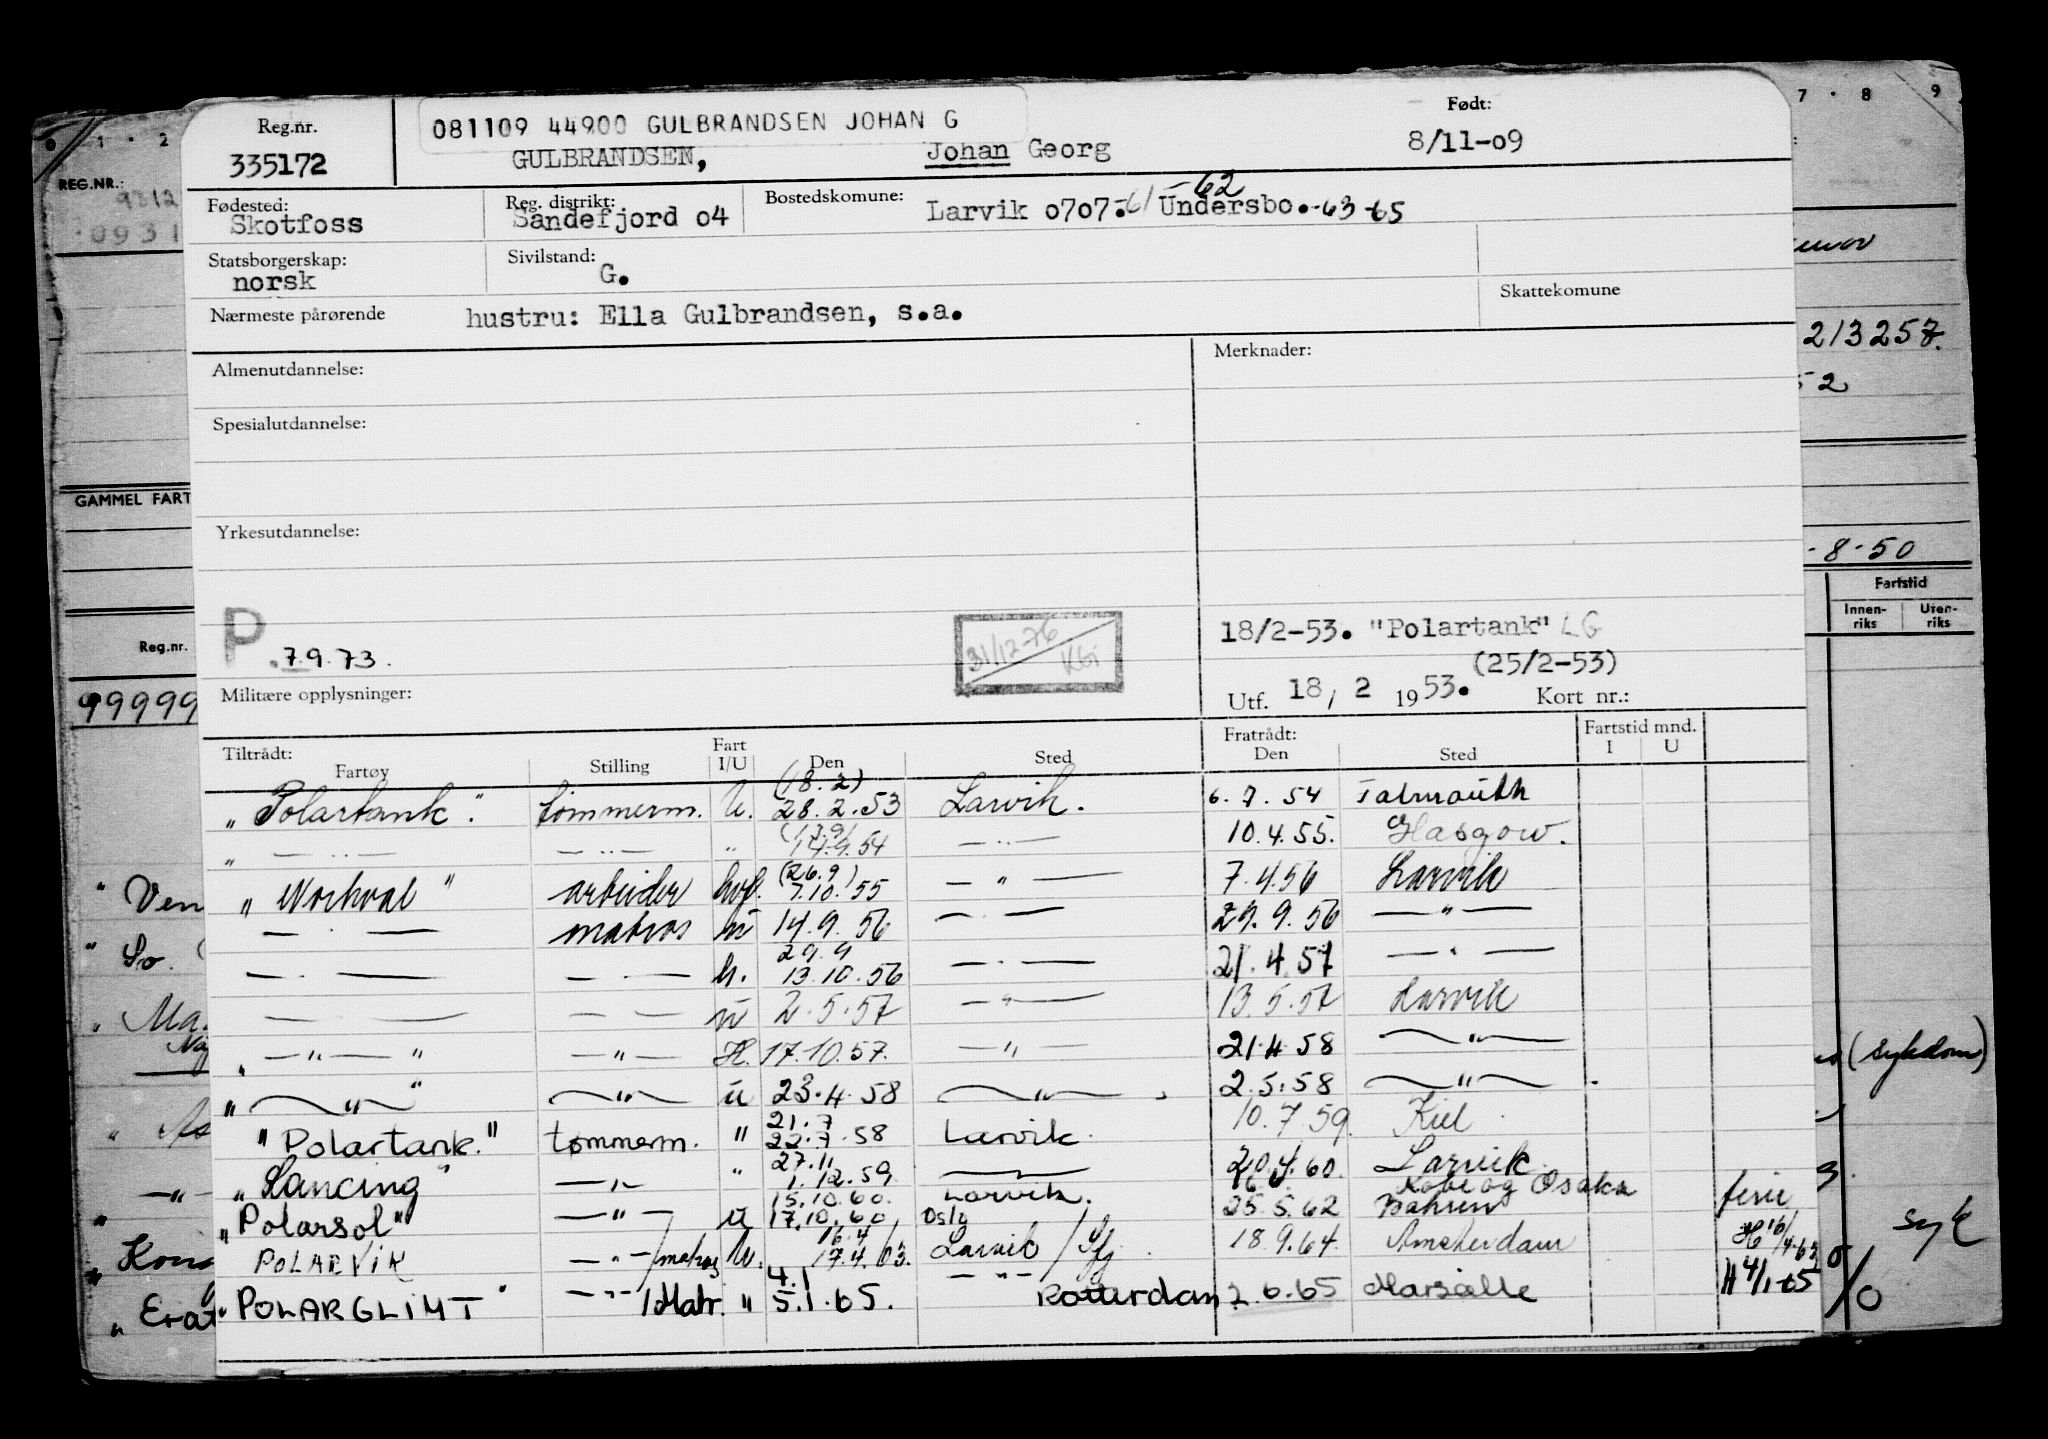 Reg.nr.
335172
081109 44900 GULBRANDSEN JOHAN G
GULBRANDSEN, Johan Georg
Født:
8/11-09
Fødested:
Skotfoss
Reg. distrikt:
Sandefjord 04
Bostedskomune: Larvik 0707.-61 Undersbo.-62 -63 -65
Statsborgerskap:
norsk
Sivilstand:
G.
Nærmeste pårørende hustru: Ella Gulbrandsen, s.a.
Skattekomune
Almenutdannelse:
Merknader:
Spesialutdannelse:
Yrkesutdannelse:
P. 7.9.73.
31/12-76
KGi
18/2-53. "Polartank" LG
(25/2-53)
Militære opplysninger:
Utf. 18/ 2 1953. Kort nr.:
Tiltrådt:
Fartøy Stilling Fart I/U Den Sted
Fratrådt:
Den Sted
Fartstid mnd.
I U
"Polartank". tømmerm. U. (18.2) 28.2.53 Larvik. 6.7.54 Falmouth
" — " — — " — " (13.9) 14.9.54 — " — 10.4.55. Glasgow.
"Norhval" arbeider hvf. (26.9) 7.10.55 — " — 7.4.56 Larvik
— " — matros u 14.9.56 — " — 29.9.56 — " —
— " — — " — h. 29.9 13.10.56 — " — 21.4.57 — " —
— " — — " — u 2.5.57 — " — 13.5.57 Larvik
" — " — " — " — H. 17.10.57. — " — 21.4.58 — " —
" — " — " — " — u 23.4.58 — " — 2.5.58 — " —
"Polartank." tømmerm. " 21.7 22.7.58 Larvik. 10.7.59. Kiel
"Lancing" — " — " 27.11 1.12.59 — 20.4.60. Larvik
"Polarsol" — " — u 15.10.60. 17.10.60 Larvik. Oslo 25.5.62 Kobe og Osaka Bahrein ferie
POLARVIK — " — /matros U. 16.4 17.4.63. Larvik / Sfj. 18.9.64. Amsterdam H 16/4-63
"POLARGLIMT" — " — /Matr. " 4.1 5.1.65. — " — Rotterdam 2.6.65 Marseille H 4/1-65
1 · 2
7 · 8 9
REG.NR.:
9312
0931
213257.
52
GAMMEL FART
-8-50
Reg.nr.
99999
Fartstid
Innen-
riks
Uten-
riks
" Ven
" So.
" Ma.
(sykdom)
syk
" Erat